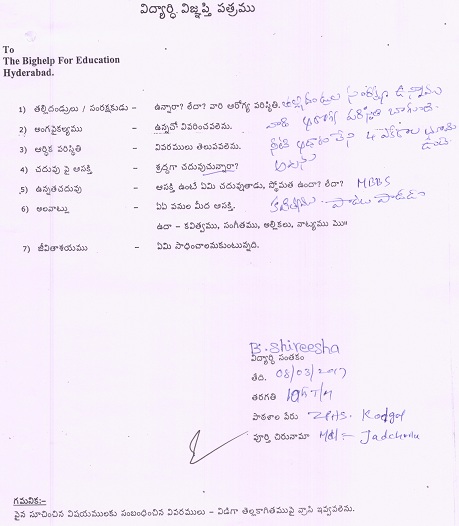 విద్యార్ధి విజ్ఞప్తి పత్రము
To
The Bighelp For Education
Hyderabad.
1) తల్లిదండ్రులు / సంరక్షకుడు - ఉన్నారా? లేదా? వారి ఆరోగ్య పరిస్థితి. తల్లిదండ్రుల
వారి ఆరోగ్య పరిస్థితి బాగుంది.
2) అంగవైకల్యము - ఉన్నచో వివరించవలెను.
3) ఆర్ధిక పరిస్థితి - వివరములు తెలుపవలెను.
4) చదువు పై ఆసక్తి - శ్రద్ధగా చదువుచున్నారా? అవును
5) ఉన్నతచదువు - ఆసక్తి ఉంటే ఏమి చదువుతాడు, స్తోమత ఉందా? లేదా? MBBS
6) అలవాట్లు - ఏఏ పనుల మీద ఆసక్తి. కవిత్వము పాటలు పాడడం
ఉదా - కవిత్వము, సంగీతము, అల్లికలు, నాట్యము మొ॥
7) జీవితాశయము - ఏమి సాధించాలనుకుంటున్నది.
B. Shireesha
విద్యార్ధి సంతకం
తేది. 08/03/2017
తరగతి 10th
పాఠశాల పేరు ZPHS. Kodgal
పూర్తి చిరునామా Mdl:- Jadcherla
గమనిక:-
పైన సూచించిన విషయములకు సంబంధించిన వివరములు - విడిగా తెల్లకాగితముపై వ్రాసి ఇవ్వవలెను.